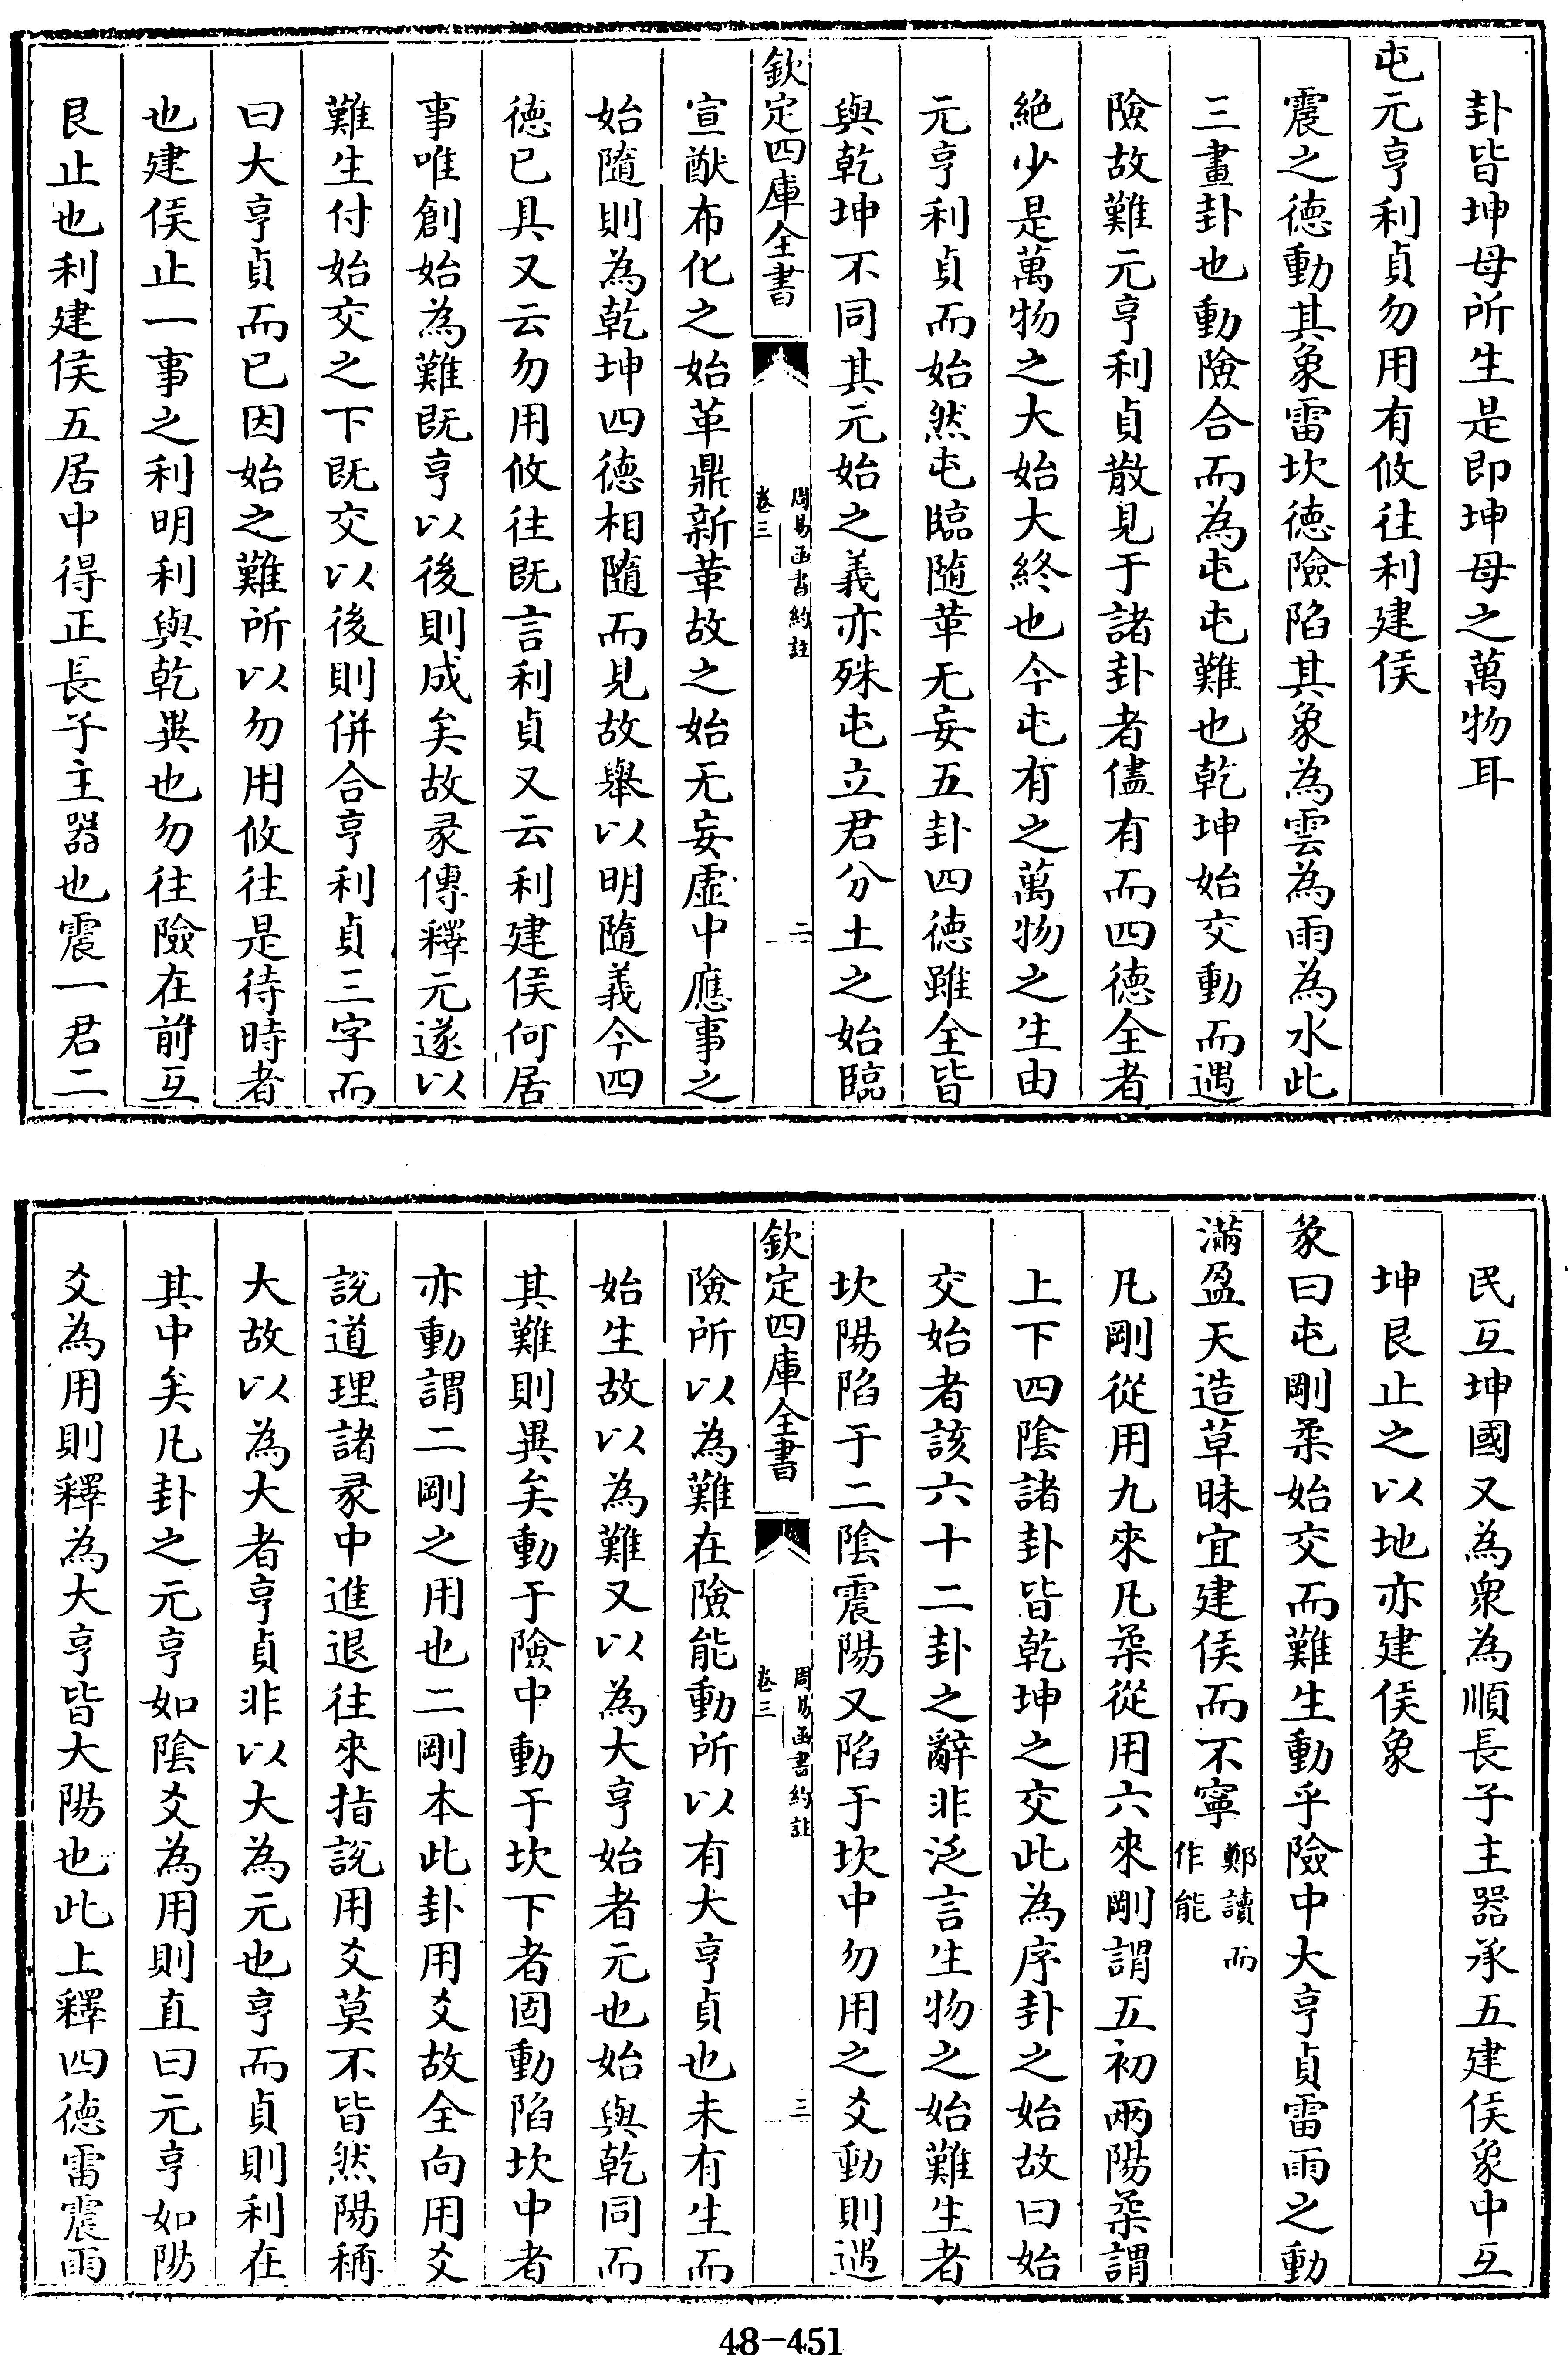 卦皆坤母所生是即坤母之萬物耳
屯元亨利貞勿用有攸往利建侯
震之德動其象雷坎德險陷其象為雲為雨為水此
三畫卦也動險合而為屯屯難也乾坤始交動而遇
險故難元亨利貞散見于諸卦者儘有而四德全者
絶少是萬物之大始大終也今屯有之萬物之生由
元亨利貞而始然屯臨隨革无妄五卦四德雖全皆
與乾坤不同其元始之義亦殊屯立君分土之始臨
欽定四庫全書
周易函書約註
卷三
二
宣猷布化之始革鼎新革故之始无妄虛中應事之
始隨則為乾坤四德相隨而見故舉以明隨義今四
德已具又云勿用攸往既言利貞又云利建侯何居
事唯創始為難既亨以後則成矣故彖傳釋元遂以
難生付始交之下既交以後則併合亨利貞三字而
曰大亨貞而已因始之難所以勿用攸往是待時者
也建侯止一事之利明利與乾異也勿往險在前互
艮止也利建侯五居中得正長子主器也震一君二
民互坤國又為衆為順長子主器承五建侯象中互
坤艮止之以地亦建侯象
彖曰屯剛柔始交而難生動乎險中大亨貞雷雨之動
滿盈天造草昧宜建侯而不寧鄭讀而作能
凡剛從用九來凡柔從用六來剛謂五初兩陽柔謂
上下四陰諸卦皆乾坤之交此為序卦之始故曰始
交始者該六十二卦之辭非泛言生物之始難生者
坎陽陷于二陰震陽又陷于坎中勿用之爻動則遇
欽定四庫全書
周易函書約註
卷三
三
險所以為難在險能動所以有大亨貞也未有生而
始生故以為難又以為大亨始者元也始與乾同而
其難則異矣動于險中動于坎下者固動陷坎中者
亦動謂二剛之用也二剛本此卦用爻故全向用爻
說道理諸彖中進退往來指說用爻莫不皆然陽稱
大故以為大者亨貞非以大為元也亨而貞則利在
其中矣凡卦之元亨如陰爻為用則直曰元亨如陽
爻為用則釋為大亨皆大陽也此上釋四德雷震雨
48-451